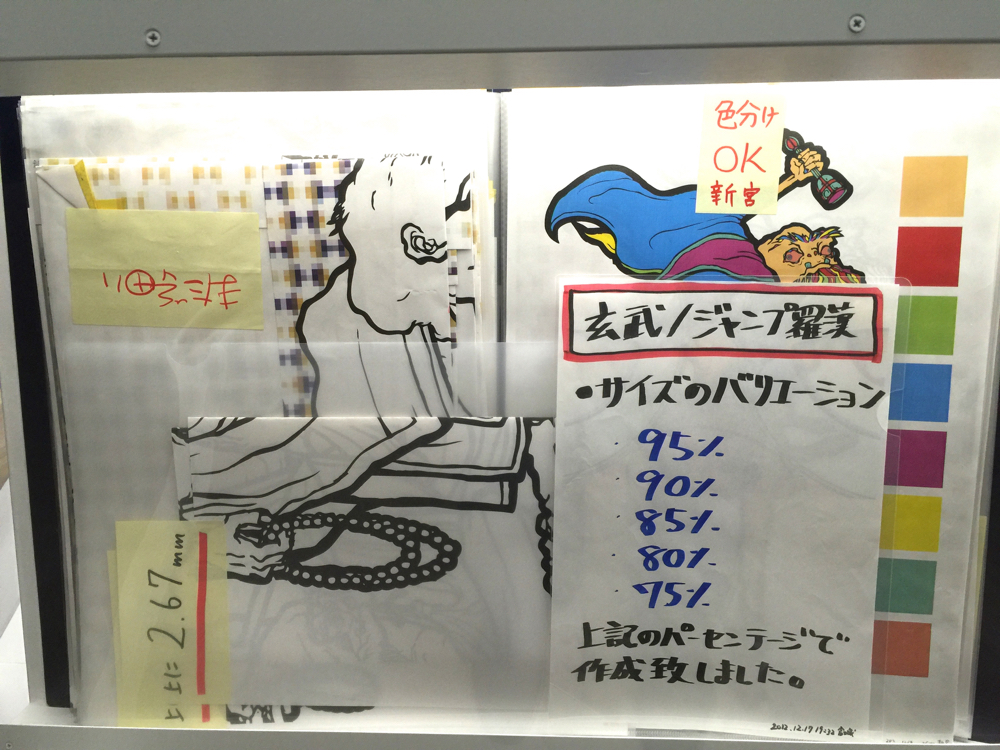 色分け
OK
新宮
玄武/ジャンプ羅漢
•サイズのバリエーション
・95%
・90%
・85%
・80%
・75%
上記のパーセンテージで
作成致しました。
上に 2.67mm